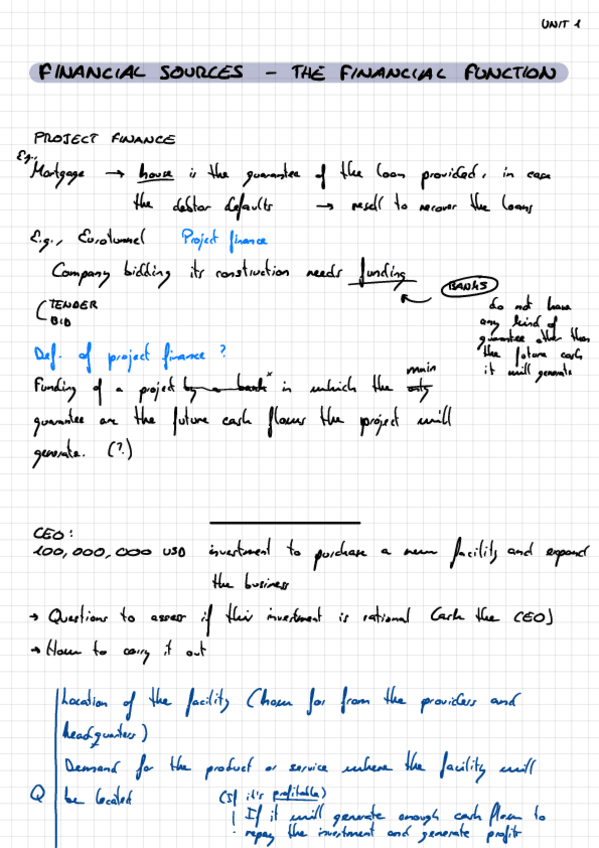 UNIT 1
FINANCIAL SOURCES - THE FINANCIAL FUNCTION
PROJECT FINANCE
E.g.,
Mortgage → house is the guarantee of the loan provided, in case
the debtor defaults → resell to recover the loans
E.g., Eurotunnel Project finance
Company bidding its construction needs funding
BANKS
do not have
any kind of
guarantee other than
the future cash
it will generate
(TENDER
BID
Def. of project finance?
main
Funding of a project by a bank x in which the only
guarantee are the future cash flows the project will
generate. (?)
CEO:
100,000,000 USD investment to purchase a new facility and expand
the business
→ Questions to assess if this investment is rational (ask the CEO)
→ How to carry it out
Location of the facility (how far from the providers and
headquarters)
Demand for the product or service where the facility will
Q be located (If it's profitable)
! If it will generate enough cash flow to
repay the investment and generate profits